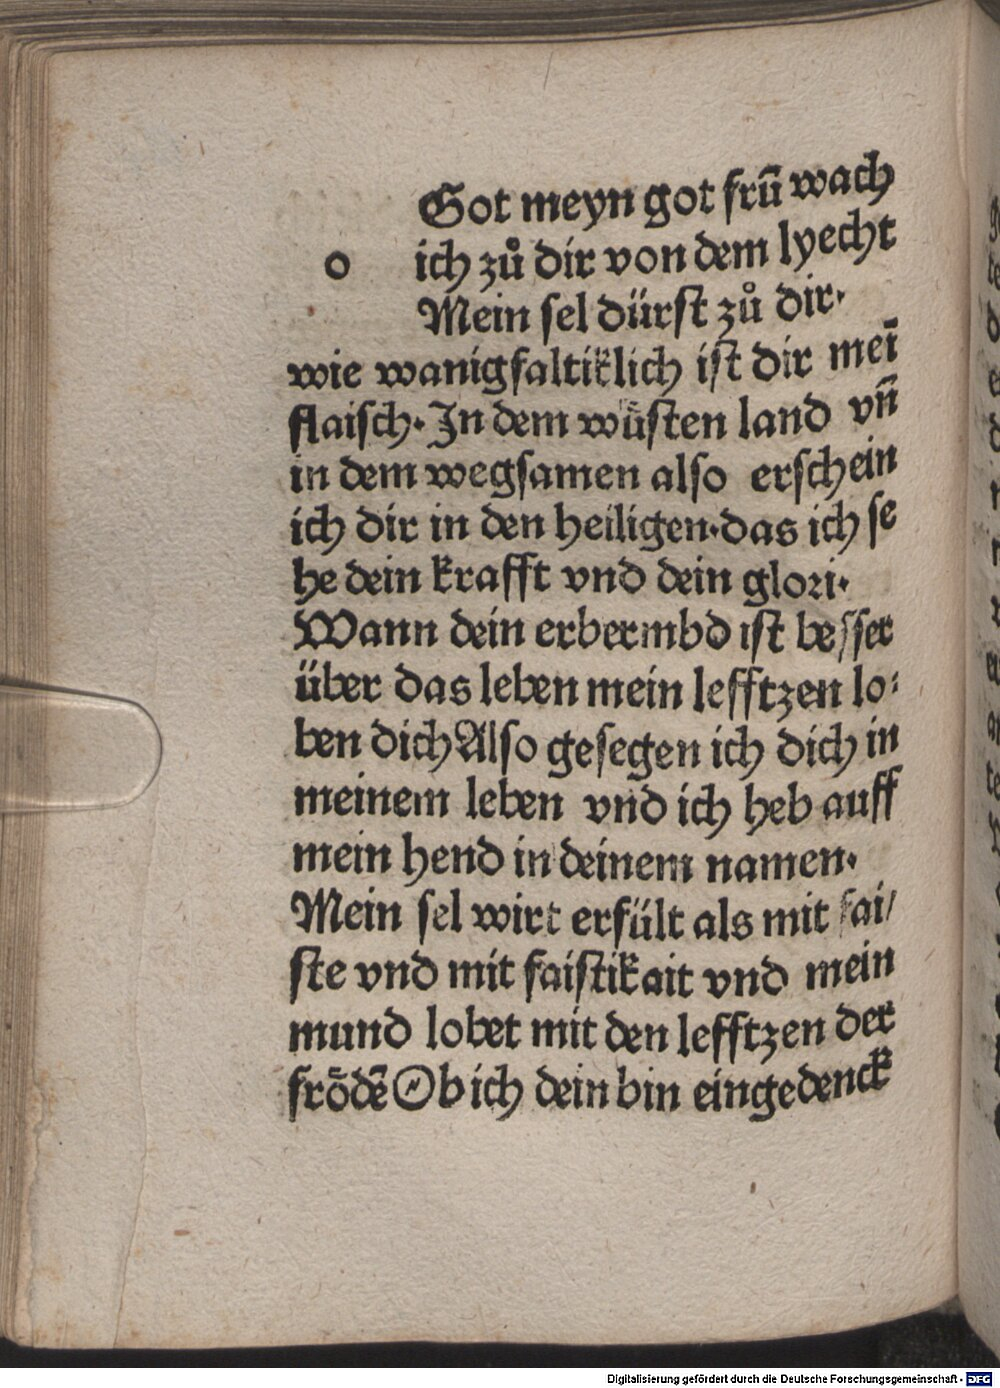 Got meyn got frü wach
o ich zů dir von dem lyecht
Mein sel dürst zů dir·
wie wanigfaltiklich ist dir mei̅
flaisch· In dem wüsten land vn̅
in dem wegsamen also erschein
ich dir in den heiligen·das ich se
he dein krafft vnd dein glori·
Wann dein erbermbd ist besser
über das leben mein lefftzen lo⸗
ben dich Also gesegen ich dich in
meinem leben vnd ich heb auff
mein hend in deinem namen·
Mein sel wirt erfült als mit fai/
ste vnd mit faistikait vnd mein
mund lobet mit den lefftzen der
fröde̅ Ob ich dein bin eingedenck
Digitalisierung gefördert durch die Deutsche Forschungsgemeinschaft - DFG